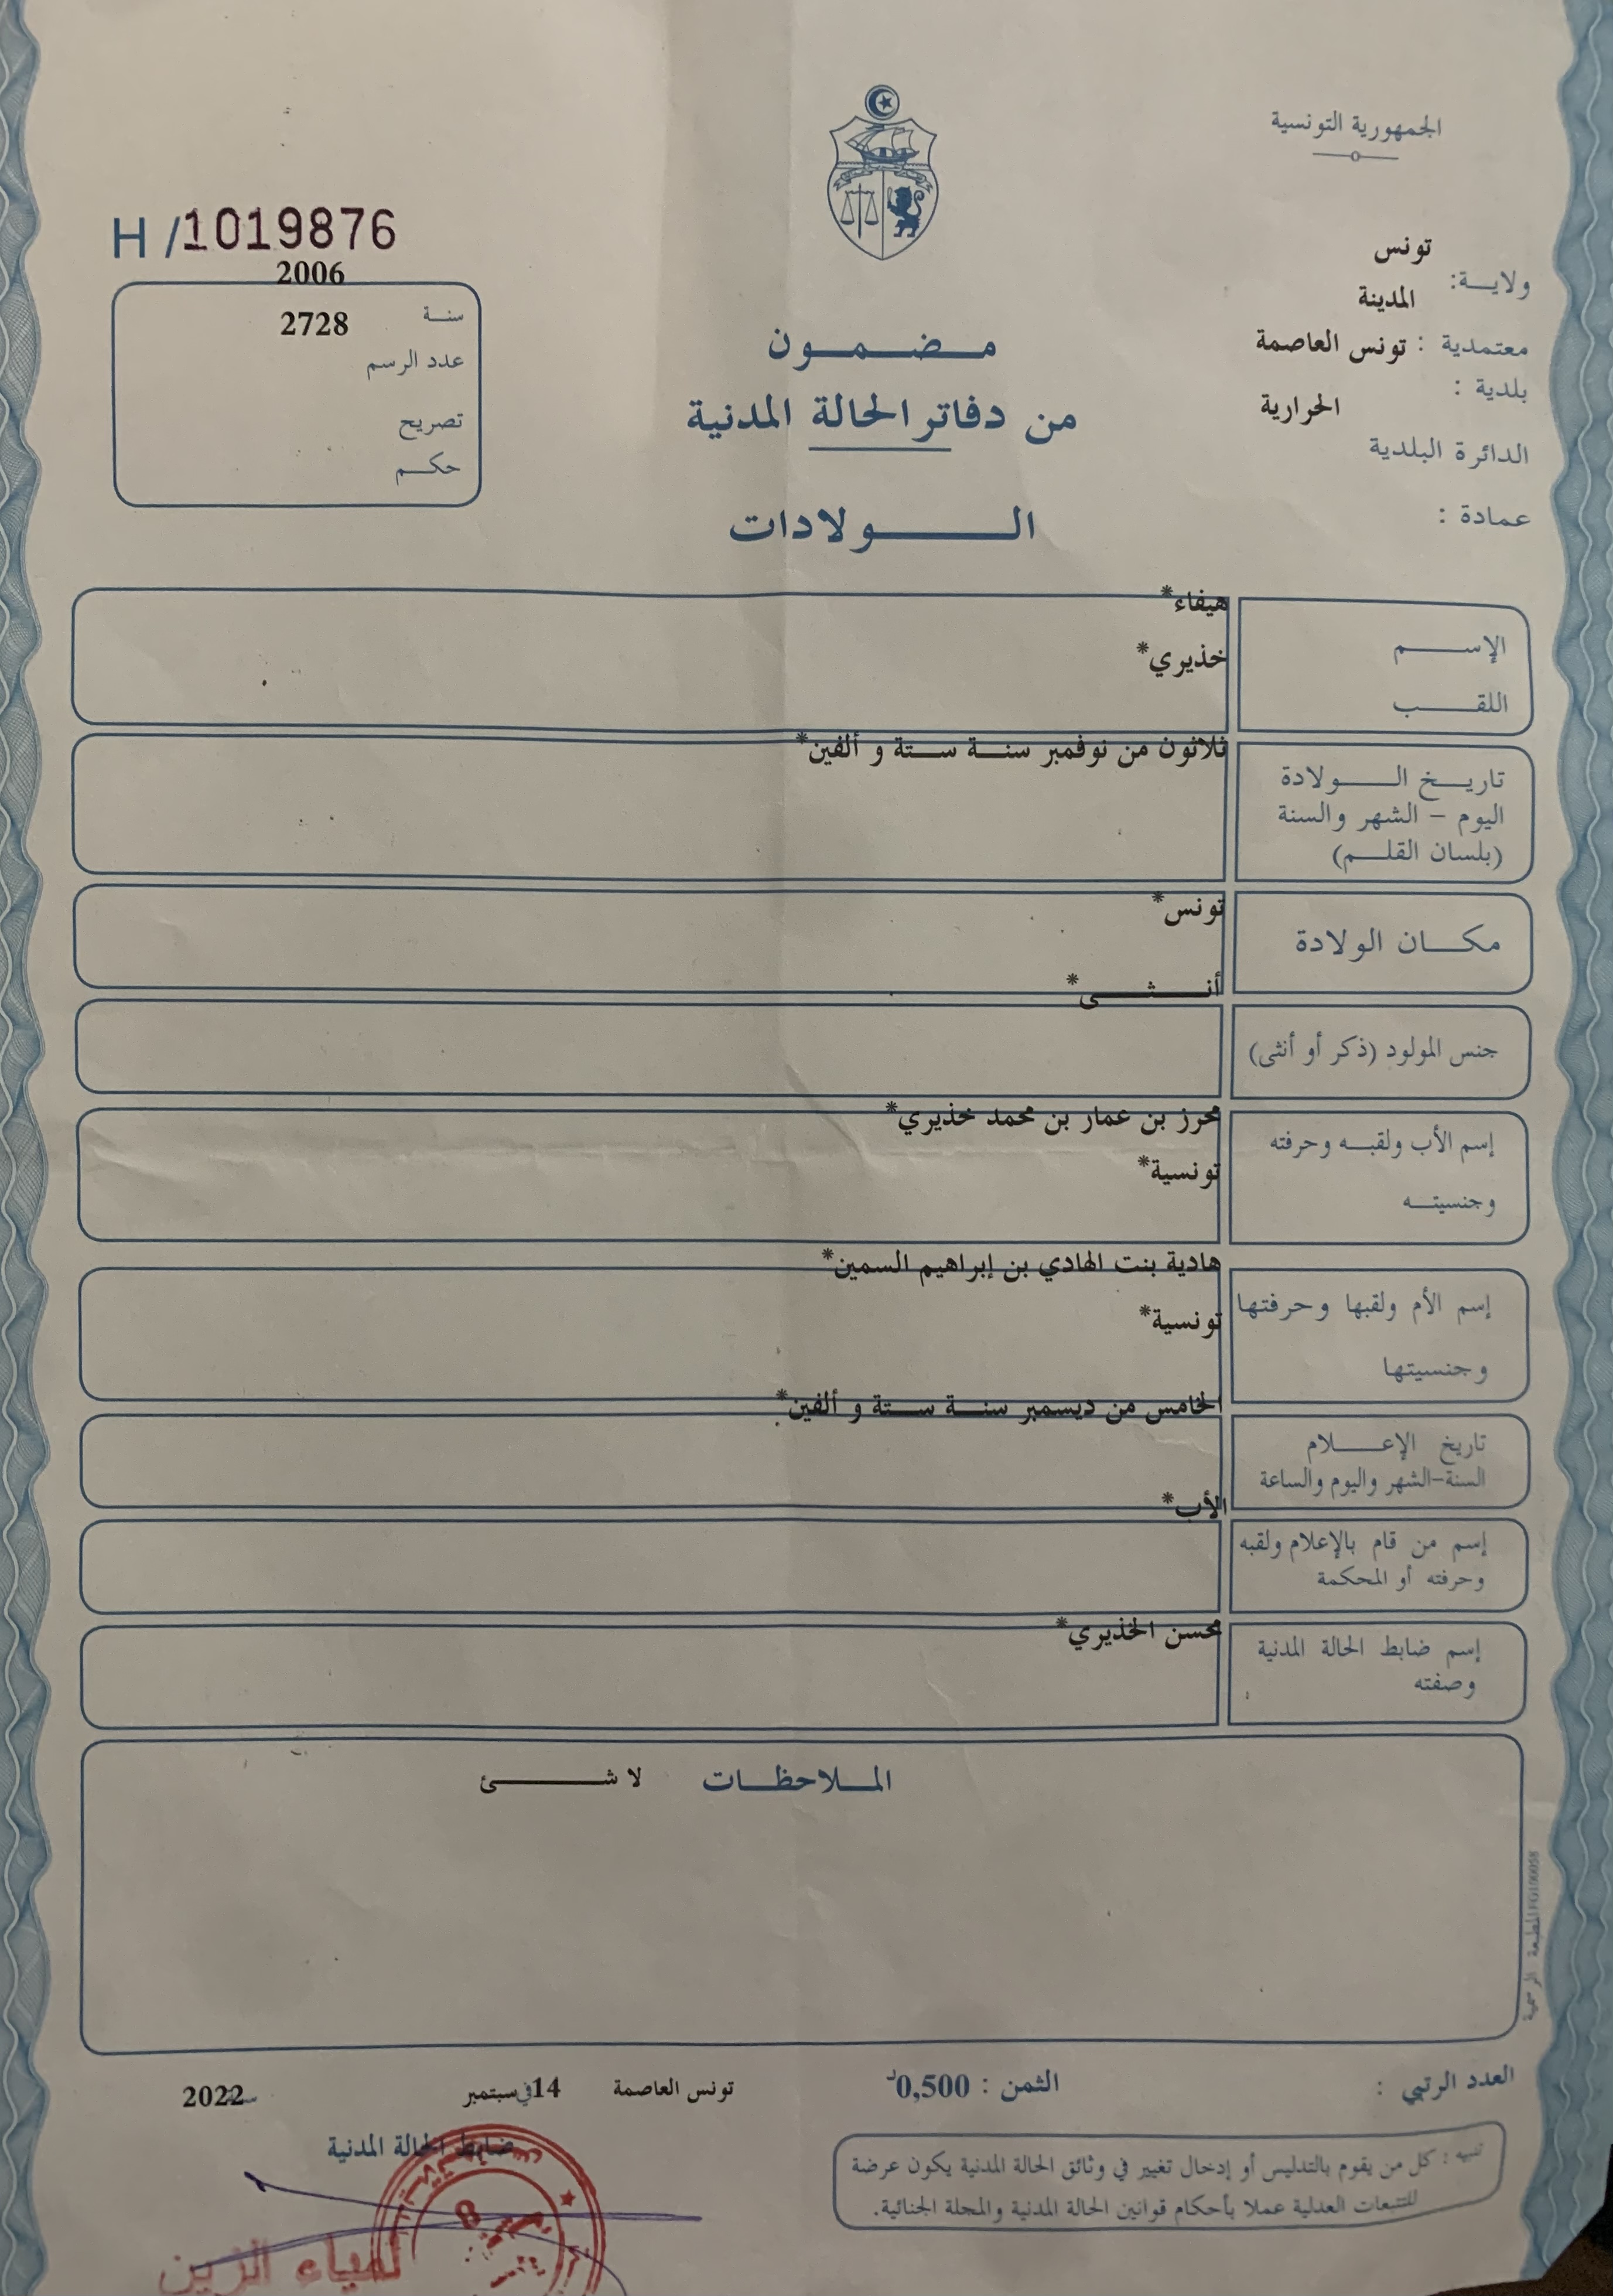 الجمهورية التونسية
H /1019876
ولايـــة: تونس
المدينة
معتمدية : تونس العاصمة
بلدية :
الحرارية
الدائرة البلدية
عمادة :
2006
سنـــة
2728
عدد الرسم
تصريح
حكـــم
مـــضـــمـــون
من دفاتر الحالة المدنية
الـــــولادات
هيفاء*
الإســـــم
خذيري*
اللقـــــب
ثلاثون من نوفمبر سنـــة ستـــة و ألفين*
تاريـــخ الـــــولادة
اليوم – الشهر والسنة
(بلسان القلـــم)
تونس*
مكـــان الولادة
أنـــثـــى*
جنس المولود (ذكر أو أنثى)
محرز بن عمار بن محمد خذيري*
إسم الأب ولقبـــه وحرفته
تونسية*
وجنسيتـــه
هادية بنت الهادي بن إبراهيم السمين*
إسم الأم ولقبها وحرفتها
تونسية*
وجنسيتها
الخامس من ديسمبر سنـــة ستـــة و ألفين*
تاريخ الإعـــلام
السنة-الشهر واليوم والساعة
الأب*
إسم من قام بالإعلام ولقبه
وحرفته أو المحكمة
محسن الخذيري*
إسم ضابط الحالة المدنية
وصفته
الملاحظـــات لا شـــــئ
المطبعة الرسمية
العدد الرتبي :
الثمن : 0,500د
تونس العاصمة في 14 سبتمبر سنـــة 2022
ضابط الحالة المدنية
تنبيه : كل من يقوم بالتدليس أو إدخال تغيير في وثائق الحالة المدنية يكون عرضة
للتتبعات العدلية عملا بأحكام قوانين الحالة المدنية والمجلة الجنائية.
لمياء الزين